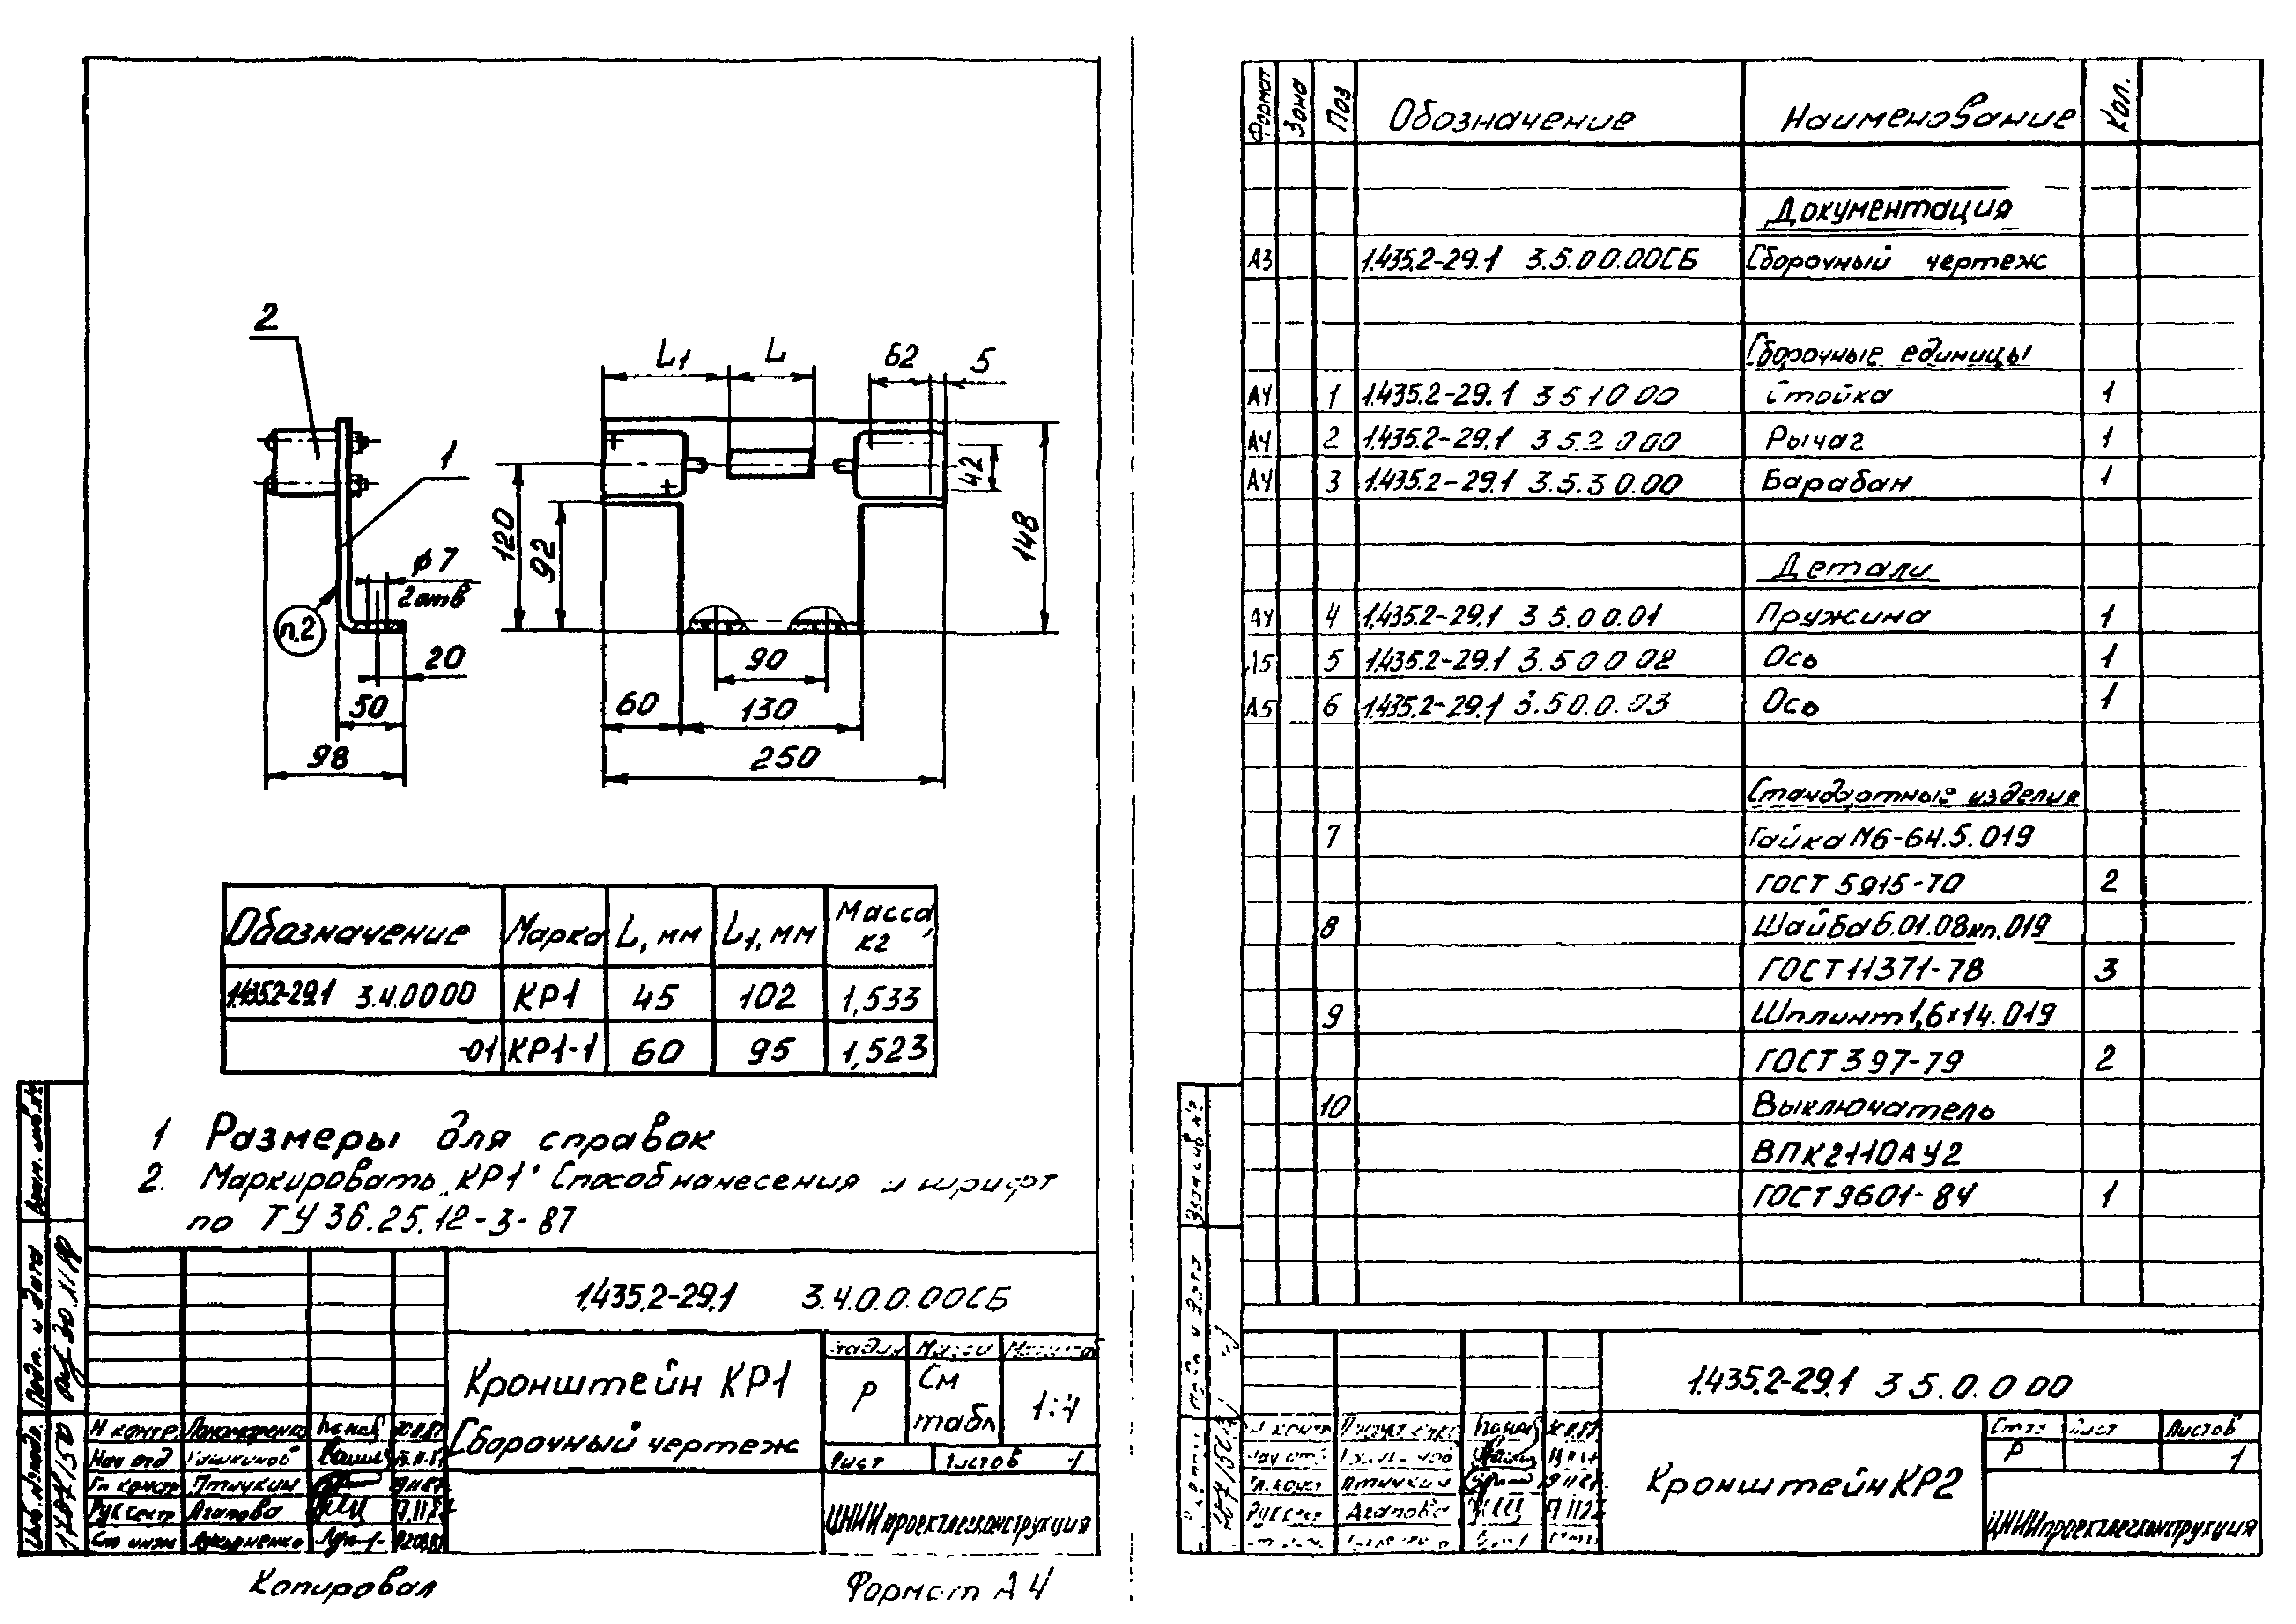 2
1
ϕ7
2 отв
п.2
20
50
98
L1 L 62 5
42
120
92
148
90
60 130
250
Обозначение Марка L, мм L1, мм Масса, кг
1.435.2-29.1 3.4.0.0.00 КР1 45 102 1,533
-01 КР1-1 60 95 1,523
1 Размеры для справок
2. Маркировать „КР1" Способ нанесения и шрифт
по ТУ 36.25.12-3-87
1.435.2-29.1 3.4.0.0.00СБ
Кронштейн КР1
Сборочный чертеж
Стадия Масса Масштаб
Р См табл 1:4
Лист Листов 1
ЦНИИпроектлегконструкция
Н контр Пономаренко
Нач отд
Гл констр Птичкин
Рук сектр Агапова
Ст инж Лукьяненко
Взам. инв. №
Подп. и дата
Инв. № подл.
Копировал Формат А4
Формат Зона Поз Обозначение Наименование Кол.
Документация
А3 1.435.2-29.1 3.5.0.0.00СБ Сборочный чертеж
Сборочные единицы
А4 1 1.435.2-29.1 3.5.1.0.00 Стойка 1
А4 2 1.435.2-29.1 3.5.2.0.00 Рычаг 1
А4 3 1.435.2-29.1 3.5.3.0.00 Барабан 1
Детали
А4 4 1.435.2-29.1 3.5.0.0.01 Пружина 1
А5 5 1.435.2-29.1 3.5.0.0.02 Ось 1
А5 6 1.435.2-29.1 3.5.0.0.03 Ось 1
Стандартные изделия
7 Гайка М6-6Н.5.019
ГОСТ 5915-70 2
8 Шайба 6.01.08кп.019
ГОСТ 11371-78 3
9 Шплинт 1,6×14.019
ГОСТ 397-79 2
10 Выключатель
ВПК2110АУ2
ГОСТ 9601-84 1
1.435.2-29.1 3.5.0.0.00
Кронштейн КР2
Лист Листов
Р 1
ЦНИИпроектлегконструкция
Гл. конст Птичкин
Рук сект Агапова